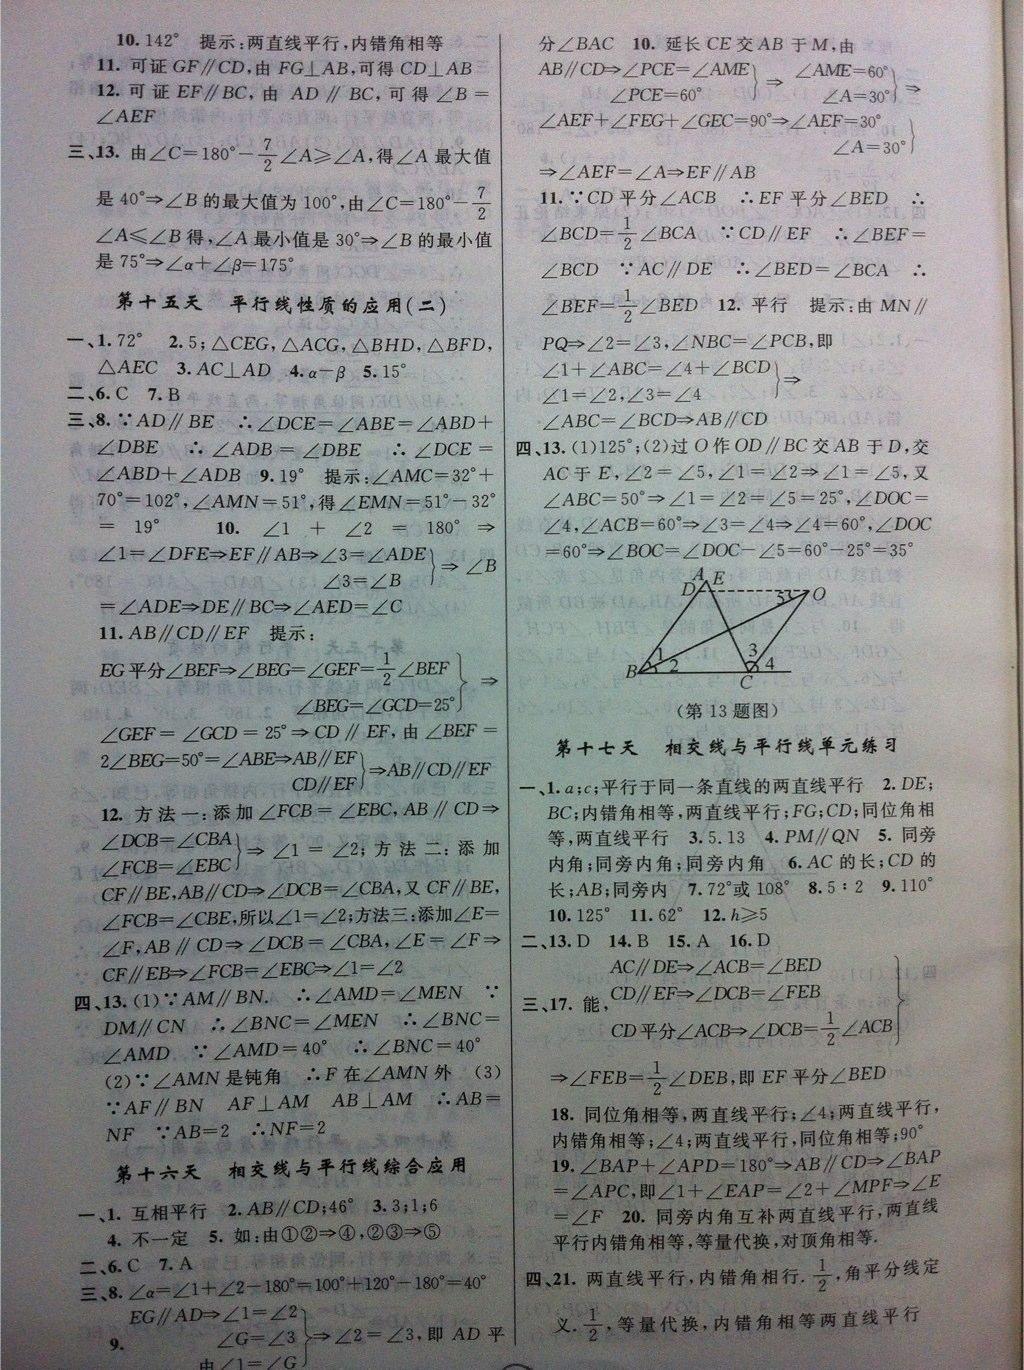 10. 142° 提示:两直线平行,内错角相等
11. 可证GF∥CD,由FG⊥AB,可得CD⊥AB
12. 可证EF∥BC,由 AD∥BC,可得∠B=
∠AEF
三、13. 由∠C=180°-7/2∠A⩾∠A,得∠A最大值
是40°⇒∠B的最大值为100°,由∠C=180°-7/2
∠A⩽∠B得,∠A最小值是30°⇒∠B的最小值
是75°⇒∠α+∠β=175°
第十五天 平行线性质的应用(二)
一、1. 72° 2. 5;△CEG,△ACG,△BHD,△BFD,
△AEC 3. AC⊥AD 4. α-β 5. 15°
二、6. C 7. B
三、8. ∵AD∥BE ∴∠DCE=∠ABE=∠ABD+
∠DBE ∴∠ADB=∠DBE ∴∠DCE=
∠ABD+∠ADB 9. 19° 提示:∠AMC=32°+
70°=102°,∠AMN=51°,得∠EMN=51°-32°
=19° 10. ∠1+∠2=180°⇒
∠1=∠DFE⇒EF∥AB⇒∠3=∠ADE
∠3=∠B}⇒∠B
=∠ADE⇒DE∥BC⇒∠AED=∠C
11. AB∥CD∥EF 提示:
EG平分∠BEF⇒∠BEG=∠GEF=1/2∠BEF
∠BEG=∠GCD=25°}⇒
∠GEF=∠GCD=25°⇒CD∥EF,由∠BEF=
2∠BEG=50°=∠ABE⇒AB∥EF
CD∥EF}⇒AB∥CD∥EF
12. 方法一:添加∠FCB=∠EBC,AB∥CD⇒
∠DCB=∠CBA
∠FCB=∠EBC}⇒∠1=∠2;方法二:添加
CF∥BE,AB∥CD⇒∠DCB=∠CBA,又CF∥BE,
∠FCB=∠CBE,所以∠1=∠2;方法三:添加∠E=
∠F,AB∥CD⇒∠DCB=∠CBA,∠E=∠F⇒
CF∥EB⇒∠FCB=∠EBC⇒∠1=∠2
四、13. (1)∵AM∥BN. ∴∠AMD=∠MEN ∵
DM∥CN ∴∠BNC=∠MEN ∴∠BNC=
∠AMD ∵∠AMD=40° ∴∠BNC=40°
(2)∵∠AMN是钝角 ∴F在∠AMN外 (3)
∵AF∥BN AF⊥AM AB⊥AM ∴AB=
NF ∵AB=2 ∴NF=2
第十六天 相交线与平行线综合应用
一、1. 互相平行 2. AB∥CD;46° 3. 3;1;6
4. 不一定 5. 如:由①②⇒④,②③⇒⑤
二、6. C 7. A
三、8. ∠α=∠1+∠2-180°=100°+120°-180°=40°
EG∥AD⇒∠1=∠2
9. ∠G=∠3
由∠1=∠G}⇒∠2=∠3,即AD平
分∠BAC 10. 延长CE交AB于M,由
AB∥CD⇒∠PCE=∠AME
∠PCE=60°}⇒∠AME=60°
∠A=30°}⇒
∠AEF+∠FEG+∠GEC=90°⇒∠AEF=30°
∠A=30°}
⇒∠AEF=∠A⇒EF∥AB
11. ∵CD平分∠ACB ∴EF平分∠BED ∴
∠BCD=1/2∠BCA ∵CD∥EF ∴∠BEF=
∠BCD ∵AC∥DE ∴∠BED=∠BCA ∴
∠BEF=1/2∠BED 12. 平行 提示:由MN∥
PQ⇒∠2=∠3,∠NBC=∠PCB,即
∠1+∠ABC=∠4+∠BCD
∠1=∠2,∠3=∠4}⇒
∠ABC=∠BCD⇒AB∥CD
四、13. (1)125°;(2)过O作OD∥BC交AB于D,交
AC于E,∠2=∠5,∠1=∠2⇒∠1=∠5,又
∠ABC=50°⇒∠1=∠2=∠5=25°,∠DOC=
∠4,∠ACB=60°⇒∠3=∠4⇒∠4=60°,∠DOC
=60°⇒∠BOC=∠DOC-∠5=60°-25°=35°
A
D E 5 O
1 3
B 2 4
C
(第13题图)
第十七天 相交线与平行线单元练习
一、1. a;c;平行于同一条直线的两直线平行 2. DE;
BC;内错角相等,两直线平行;FG;CD;同位角相
等,两直线平行 3. 5. 13 4. PM∥QN 5. 同旁
内角;同旁内角;同旁内角 6. AC的长;CD的
长;AB;同旁内 7. 72°或108° 8. 5∶2 9. 110°
10. 125° 11. 62° 12. h⩾5
二、13. D 14. B 15. A 16. D
AC∥DE⇒∠ACB=∠BED
三、17. 能, CD∥EF⇒∠DCB=∠FEB
CD平分∠ACB⇒∠DCB=1/2∠ACB}
⇒∠FEB=1/2∠DEB,即EF平分∠BED
18. 同位角相等,两直线平行;∠4;两直线平行,
内错角相等;∠4;两直线平行,同位角相等;90°
19. ∠BAP+∠APD=180°⇒AB∥CD⇒∠BAP
=∠APC,即∠1+∠EAP=∠2+∠MPF⇒∠E
=∠F 20. 同旁内角互补两直线平行,两直线
平行内错角相等,等量代换,对顶角相等.
四、21. 两直线平行,内错角相行. 1/2,角平分线定
义. 1/2,等量代换,内错角相等两直线平行